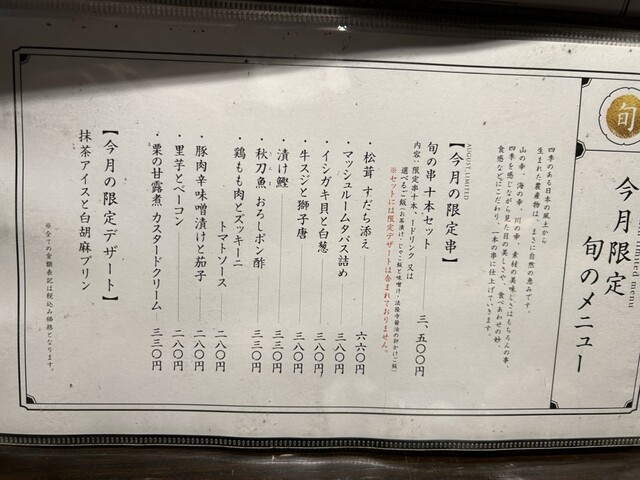 旬
今月限定
limited menu
旬のメニュー
四季のある日本の風土から
生まれた農産物は、まさに自然の恵みです。
山の幸、海の幸、川の幸、素材の美味しさはもちろんの事、
四季を感じながら見た目の美しさや、食べあわせの妙、
食感などにこだわり、一本の串に仕上げていきます。
【今月の限定串】
AUGUST LIMITED
旬の串十本セット 三、五〇〇円
内容：限定串十本、1ドリンク 又は
選べるご飯(お茶漬け・じゃこ飯と味噌汁・法隆寺醤油の卵かけご飯)
※セットには限定デザートは含まれておりません。
・松茸 すだち添え 六六〇円
・マッシュルームタパス詰め 三八〇円
・イシガキ貝と白葱 三八〇円
・牛スジと獅子唐 三八〇円
・漬け鰹 三三〇円
・秋刀魚 おろしポン酢 三三〇円
・鶏もも肉とズッキーニ
トマトソース 二八〇円
・豚肉辛味噌漬けと茄子 二八〇円
・里芋とベーコン 二八〇円
・栗の甘露煮 カスタードクリーム 三三〇円
【今月の限定デザート】
抹茶アイスと白胡麻プリン
※全ての金額表記は税込み価格となります。